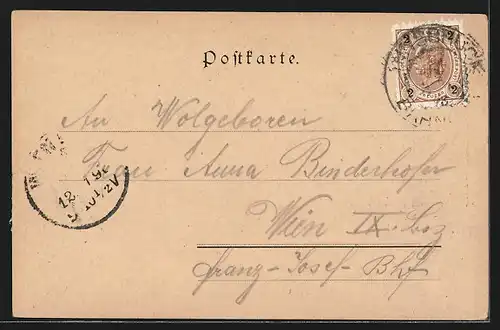 Postkarte.
2 2
2 2
An Wolgeboren
Frau Anna Binderhofer
Wien IX. Bez
Franz-Josef-Bhf
12